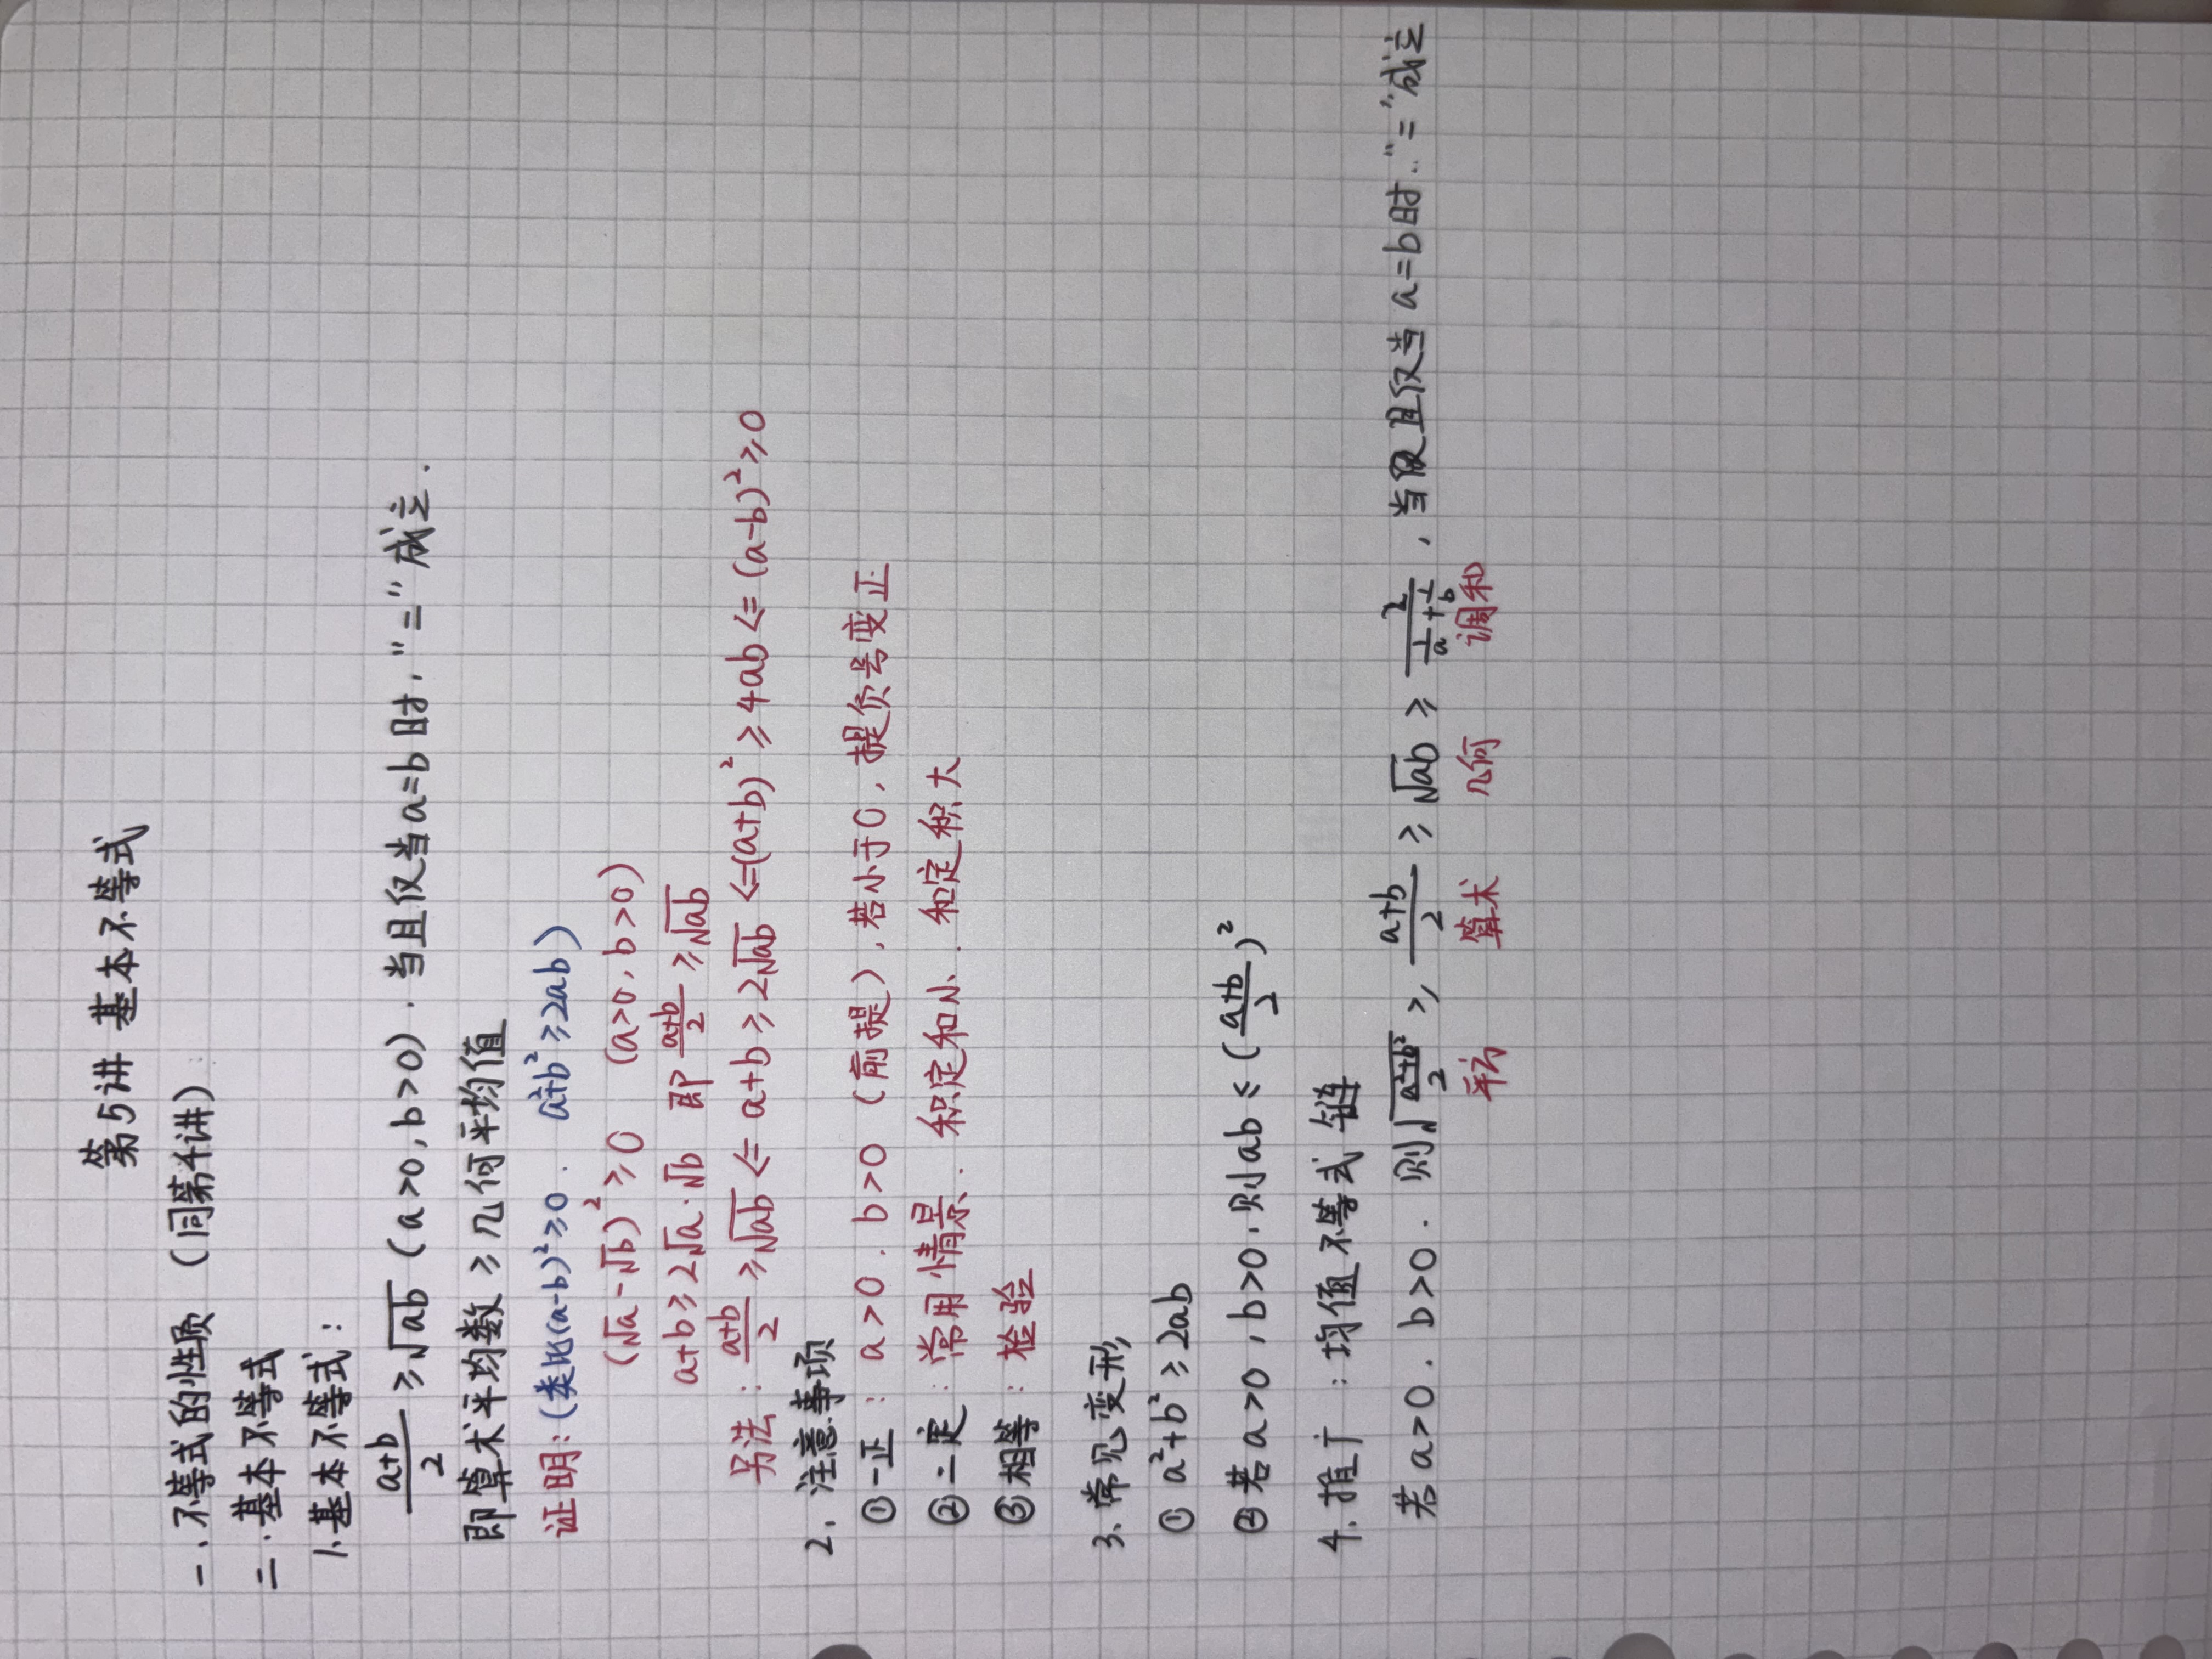 第5讲 基本不等式
一.不等式的性质 (同第4讲)
二.基本不等式
1.基本不等式:
(a+b)/2 ≥ √ab (a>0, b>0). 当且仅当a=b时, "=" 成立.
即算术平均数 ≥ 几何平均值
证明: (类比(a-b)²≥0. a²+b²≥2ab)
(√a-√b)² ≥ 0 (a>0, b>0)
a+b ≥ 2√a·√b 即 (a+b)/2 ≥ √ab
另法: (a+b)/2 ≥ √ab <= a+b ≥ 2√ab <= (a+b)² ≥ 4ab <= (a-b)² ≥ 0
2. 注意事项
①一正: a>0. b>0 (前提), 若小于0, 提负号变正
②二定: 常用情景. 积定和小. 和定积大
③相等: 检验
3. 常见变形
① a²+b² ≥ 2ab
②若a>0, b>0. 则ab ≤ ((a+b)/2)²
4. 推广: 均值不等式链
若a>0. b>0. 则√((a²+b²)/2) ≥ (a+b)/2 ≥ √ab ≥ 2/(1/a+1/b), 当且仅当a=b时. "=" 成立
算术 几何 调和